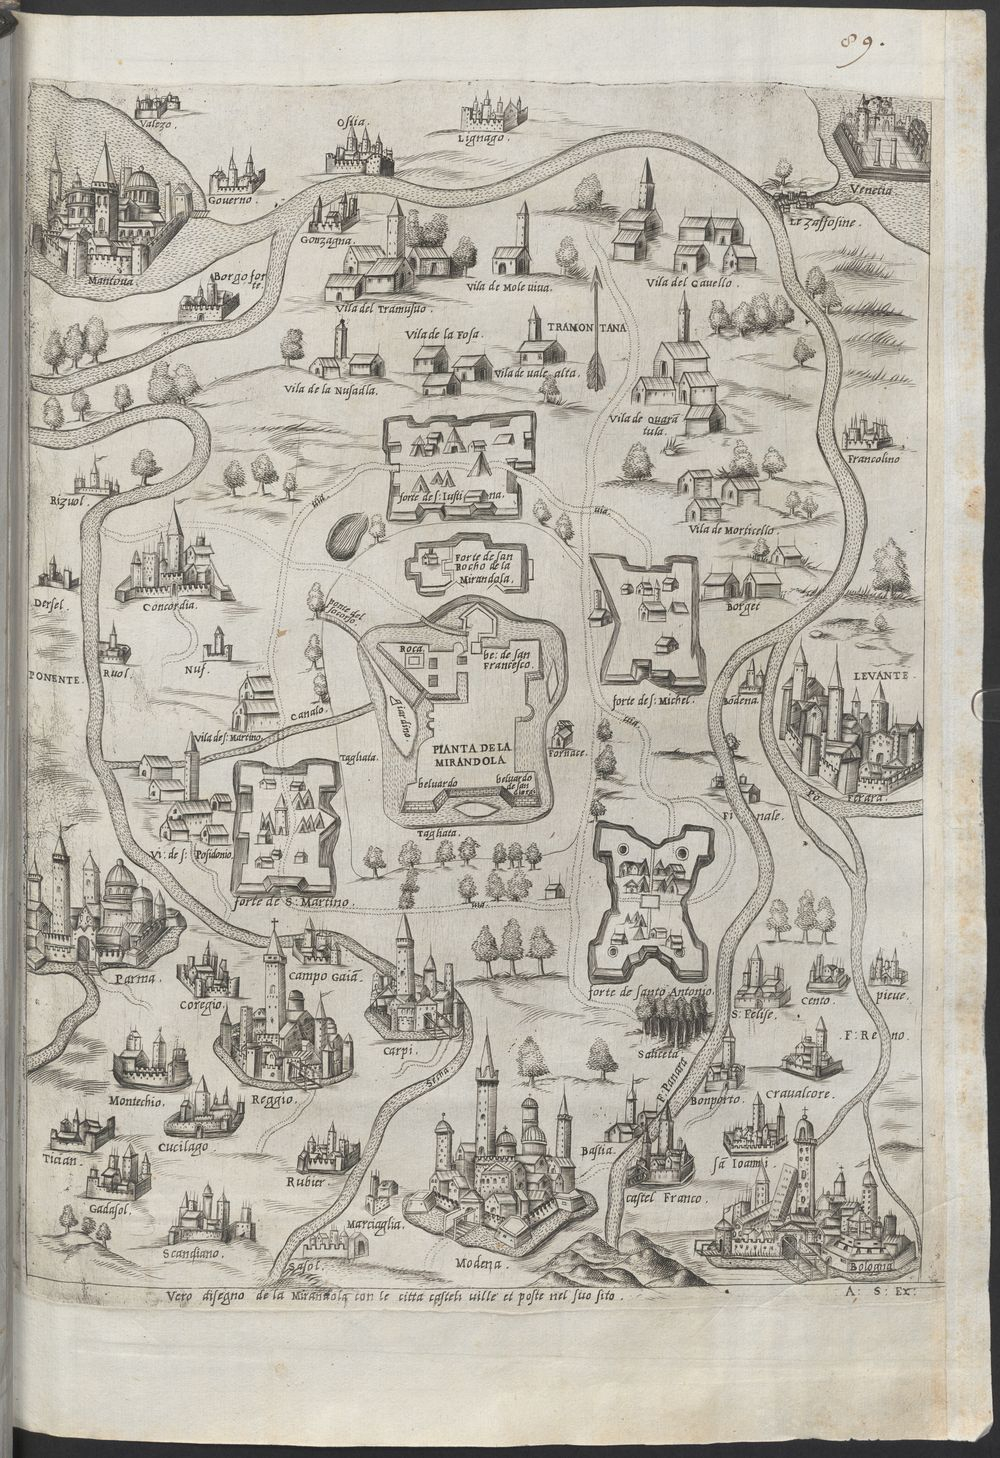 89.
Valezo.
Ostia.
Lignago.
Venetia
Gouerno.
Le Zaffosine.
Mantoua.
Gonzagna.
Borgo for
te.
Vila del Tramuſuo.
Vila de Mole uiua.
Vila del Cauello.
TRAMONTANA
Vila de la Foſa.
Vila de uale alta.
Vila de la Nuſadla.
Vila de Quarā
tula.
Francolino
Rizuol.
forte de S: Iuſti na.
uia.
uia.
Vila de Morticello.
Forte de ſan
Rocho de la
Mirandola.
Derſel.
Concordia.
ponte del
ſocorſo.
Borget
Roca.
be: de ſan
Franceſco.
PONENTE.
Ruol.
Nuf.
forte de S: Michel.
Bōdena.
LEVANTE.
Canalo.
Giardino.
uia.
Vila de S: Martino.
Tagliata.
PIANTA DE LA
MIRANDOLA
Fornace.
beluardo
beluardo
de ſan
Po.
Ferara.
Fi nale.
Tagliata.
Vi. de S: Poſidonio.
forte de S: Martino.
uia.
Parma.
Coregio.
Campo Gaiā.
forte de ſanto Antonio.
S. Feliſe.
Cento.
pieue.
F: Reno.
Carpi.
Saliceta.
Montechio.
Reggio.
Sechia.
F. Panara
Bonporto.
Craualcore.
Tician.
Cucilago.
Rubier.
Baſtia.
Sā Ioanni.
Gadaſol.
castel Franco.
Scandiano.
Marciaglia.
Saſol.
Modena.
Bologna
Vero diſegno de la Mirandola con le citta caſteli uille et poſte nel ſuo ſito.
A: S: Ex: